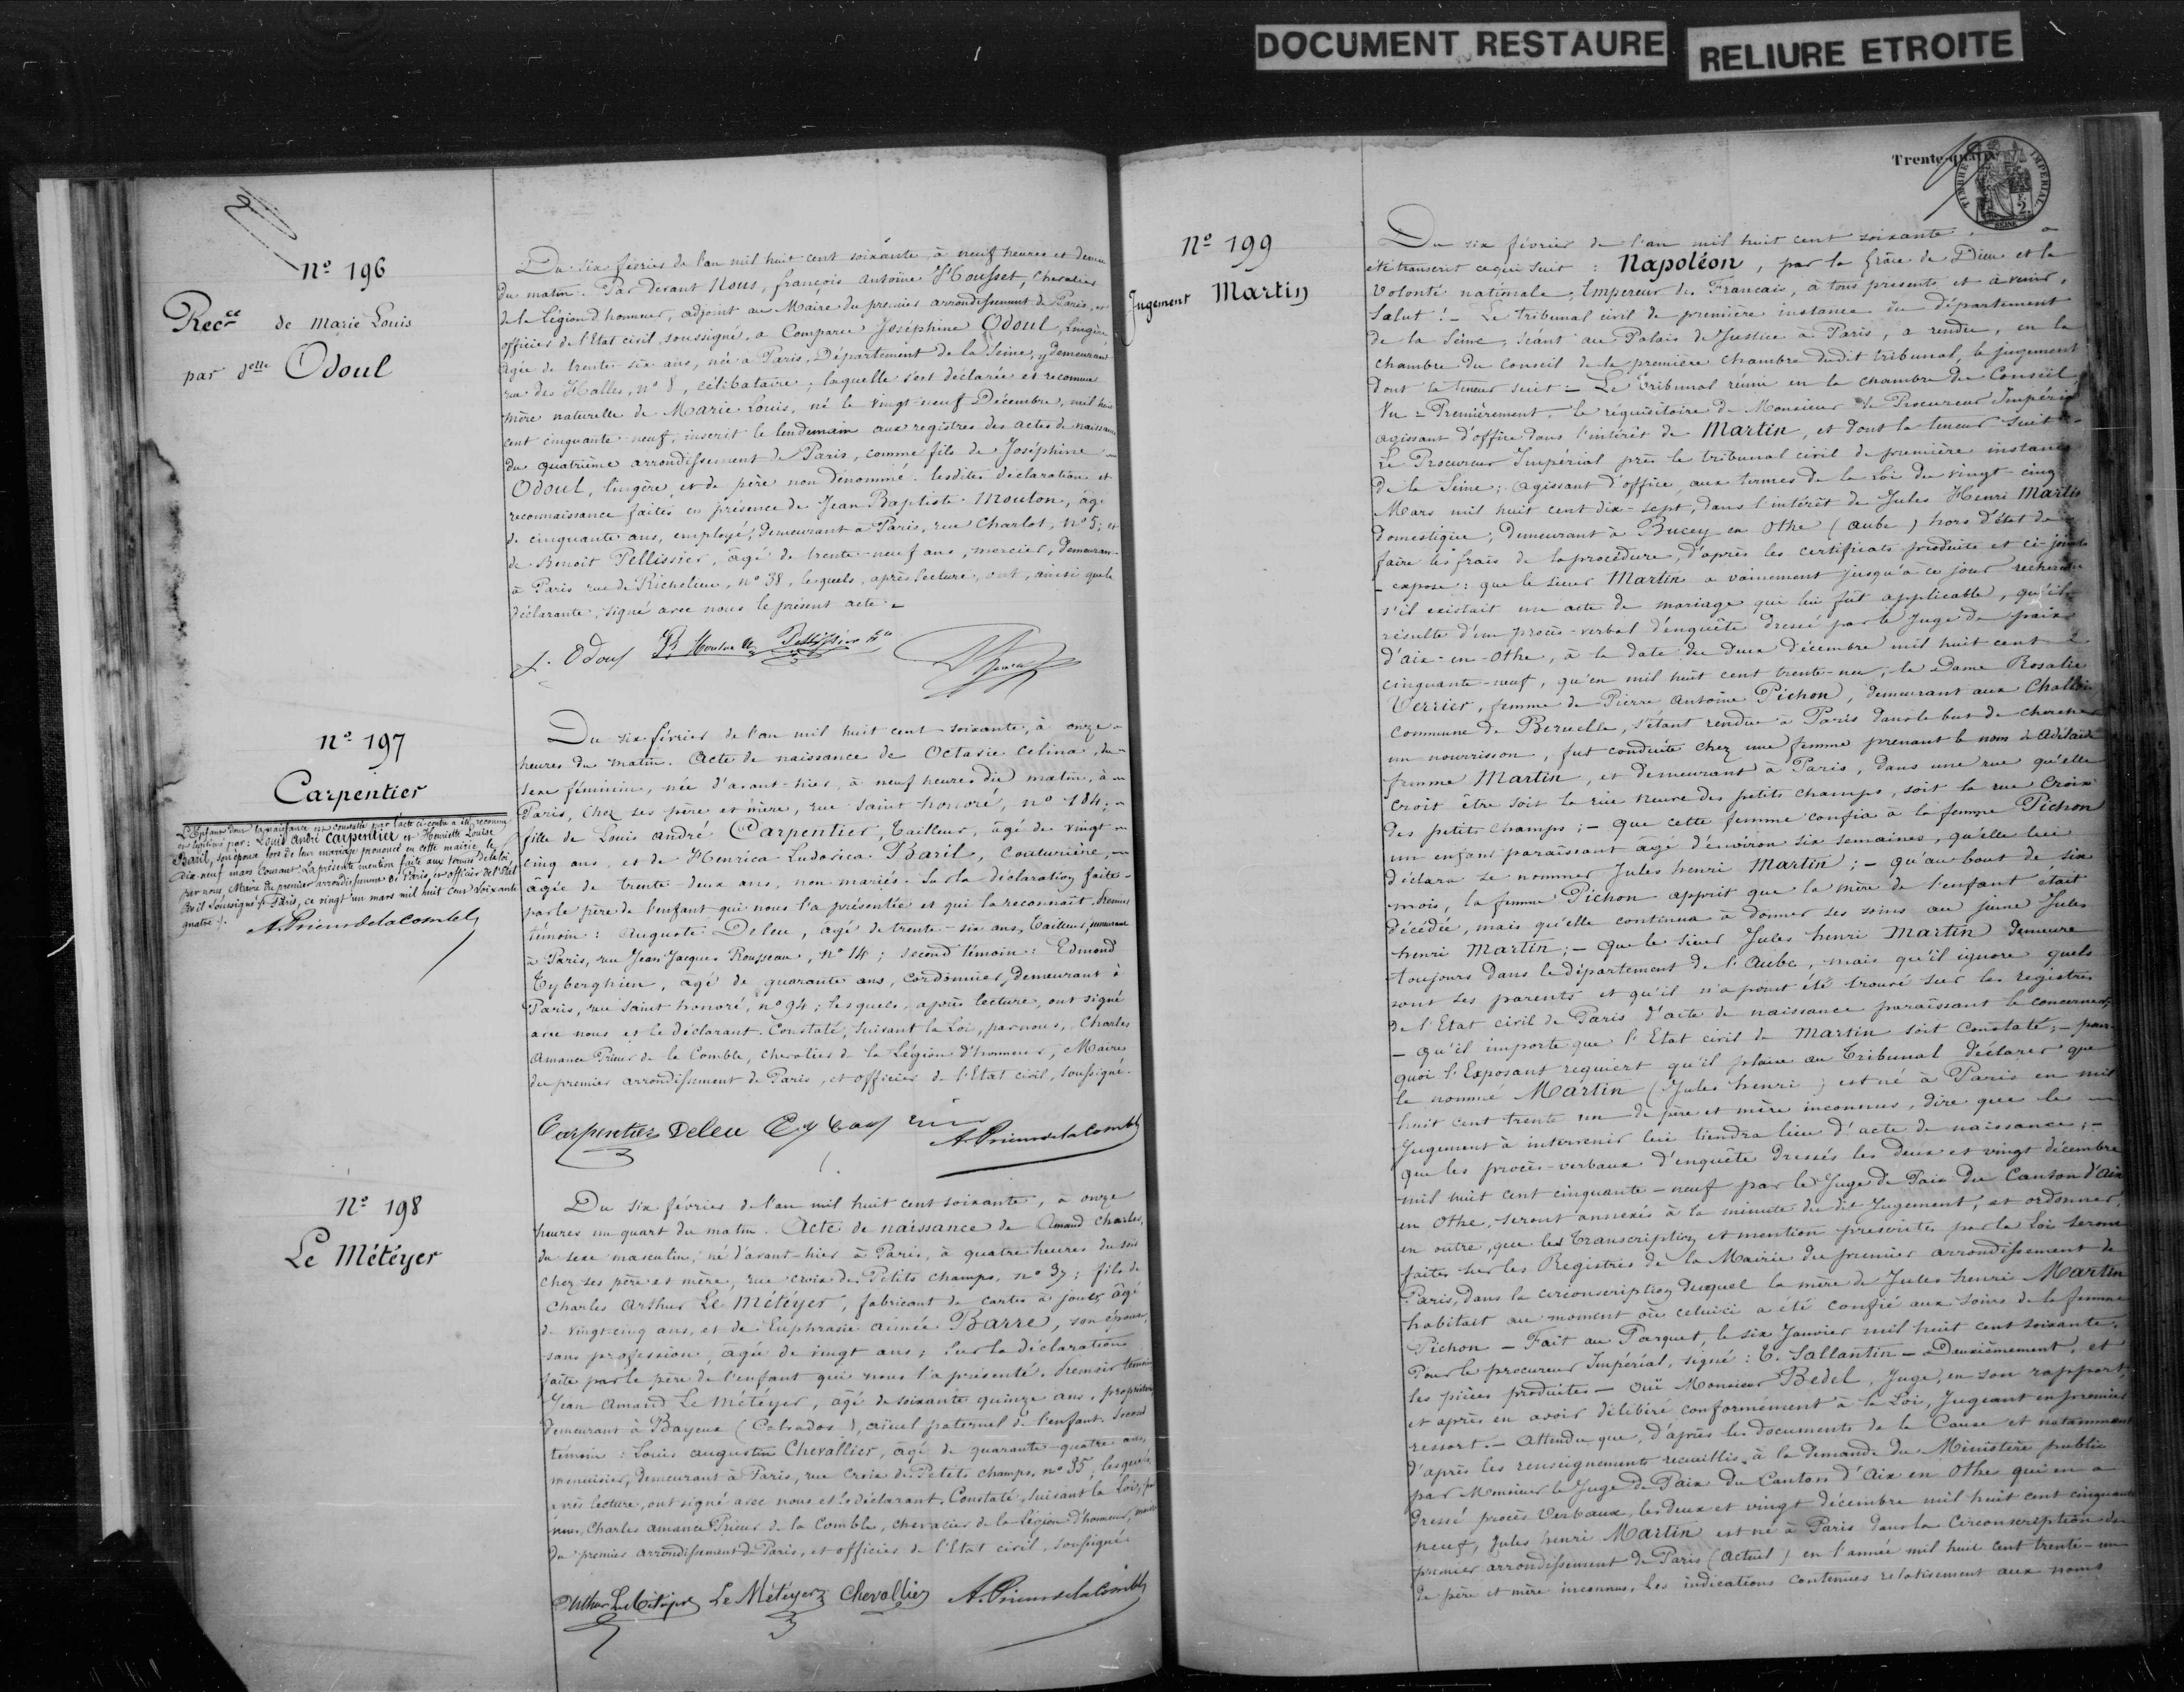 DOCUMENT RESTAURE
RELIURE ETROITE
nº 196
Recce de Marie Louis
par delle Odoul
Du six février de l'an mil huit cent soixante, à neuf heures et demie
du matin. Par devant Nous, françois antoine Housset, chevalier
de la Légion d'honneur, adjoint au Maire du premier arrondissement de Paris, et
officier de l'Etat civil, soussigné, a Comparu Joséphine Odoul, lingère
âgée de trente six ans, née à Paris, Département de la Seine, y demeurant
rue des Halles, nº 8, célibataire; laquelle s'est déclarée et reconnue
mère naturelle de Marie Louis, né le vingt-neuf Décembre, mil huit
cent cinquante-neuf, inscrit le lendemain aux registres des actes de naissance
du quatrième arrondissement de Paris, comme fils de Joséphine
Odoul, lingère, et de père non dénommé. lesdites déclaration et
reconnaissance faites en présence de Jean Baptiste Mouton, âgé
de cinquante ans, employé, demeurant à Paris, rue Charlot, nº 5; et
de Benoit Pellissier, âgé de trente-neuf ans, mercier, demeurant
à Paris rue de Richelieu, nº 38, lesquels, après lecture, ont, ainsi que la
déclarante, signé avec nous le présent acte.
J. Odoul
nº 197
Carpentier
L'Enfant dont la naissance est constatée par l'acte ci-contre a été reconnu
et légitimé par: Louis André Carpentier et Henriette Louise
Baril, son épouse lors de leur mariage prononcé en cette mairie le
dix-neuf mars Courant. La présente mention faite aux termes de la loi,
par nous, Maire du premier arrondissement de Paris, et officier de l'Etat
Civil soussigné. Paris, ce vingt un mars mil huit cent soixante
quatre.
A. Prieur de la Comble
Du six février de l'an mil huit cent soixante, à onze
heures du matin. Acte de naissance de Octavie Celina, du
sexe féminin, née d'avant-hier, à neuf heures du matin, à
Paris, chez ses père et mère, rue Saint honoré, nº 184;
fille de Louis andré Carpentier, tailleur, âgé de vingt
cinq ans, et de Henrica Ludovica Baril, couturière,
âgée de trente-deux ans, non mariés. Sur la déclaration faite
par le père de l'enfant qui nous l'a présentée et qui la reconnaît. Premier
témoin: Auguste Deleu, âgé de trente-six ans, tailleur, demeurant
à Paris, rue Jean Jacques Rousseau, nº 14; second témoin: Edmond
Tyberghien, âgé de quarante ans, cordonnier, demeurant à
Paris, rue Saint honoré, nº 94; lesquels, après lecture, ont signé
avec nous et le déclarant. Constaté, suivant la Loi, par nous, Charles
Amance Prieur de la Comble, chevalier de la Légion d'honneur, Maire
du premier arrondissement de Paris, et officier de l'Etat civil, soussigné.
Carpentier Deleu A. Prieur de la Comble
Nº 198
Le Météyer
Du six février de l'an mil huit cent soixante, à onze
heures un quart du matin. Acte de naissance de Amand Charles,
du sexe masculin, né d'avant-hier à Paris, à quatre heures du soir
chez ses père et mère, rue croix des Petits champs, nº 37; fils de
Charles Arthur Le Météyer, fabricant de cartes à jouer, âgé
de vingt-cinq ans, et de Euphrasie aimée Barre, son épouse,
sans profession, âgée de vingt ans; Sur la déclaration
faite par le père de l'enfant qui nous l'a présenté. Premier témoin
Jean Amand Le Météyer, âgé de soixante quinze ans, propriétaire
demeurant à Bayeux (Calvados), aïeul paternel de l'enfant. Second
témoin: Louis augustin Chevallier, âgé de quarante-quatre ans,
menuisier, demeurant à Paris, rue Croix des Petits champs, nº 35; lesquels,
après lecture, ont signé avec nous et le déclarant. Constaté, suivant la Loi, par
nous, Charles amance Prieur de la Comble, chevalier de la Légion d'honneur, maire
du premier arrondissement de Paris, et officier de l'Etat civil, soussigné.
Le Météyer Chevallier A. Prieur de la Comble
Trente-quatre
TIMBRE IMPERIAL
SEINE
Nº 199
Jugement Martin
Du six février de l'an mil huit cent soixante a
été transcrit ce qui suit: Napoléon, par la Grâce de Dieu et la
Volonté nationale, Empereur des Français, à tous présents et à venir,
Salut! - Le tribunal civil de première instance du département
de la Seine, séant au Palais de Justice à Paris, a rendu, en la
chambre du Conseil de la première chambre dudit tribunal, le jugement
dont la teneur suit: - Le tribunal réuni en la chambre du Conseil,
Vu - Premièrement - le réquisitoire de Monsieur le Procureur Impérial
agissant d'office dans l'intérêt de Martin, et dont la teneur suit:
Le Procureur Impérial près le tribunal civil de première instance
de la Seine; agissant d'office, aux termes de la Loi du vingt-cinq
Mars mil huit cent dix-sept, dans l'intérêt de Jules Henri Martin
domestique, demeurant à Bucey en Othe (aube) hors d'état de
faire les frais de la procédure, d'après les certificats produits et ci-joints
- expose: que le sieur Martin a vainement jusqu'à ce jour recherché
s'il existait un acte de mariage qui lui fût applicable, qu'il
résulte d'un procès-verbal d'enquête dressé par le Juge de paix
d'aix-en-Othe, à la date du deux décembre mil huit cent
cinquante-neuf, qu'en mil huit cent trente-un, la Dame Rosalie
Verrier, femme de Pierre Antoine Pichon, demeurant aux
commune de Berulle, s'étant rendue à Paris dans le but de chercher
un nourrisson, fut conduite chez une femme prenant le nom d'Adélaïde
femme Martin, et demeurant à Paris, dans une rue qu'elle
croit être soit la rue neuve des petits champs, soit la rue Croix
des petits champs; - Que cette femme confia à la femme Pichon
un enfant paraissant âgé d'environ six semaines, qu'elle lui
déclara se nommer Jules henri Martin; - qu'au bout de six
mois, la femme Pichon apprit que la mère de l'enfant était
décédée, mais qu'elle continua à donner ses soins au jeune Jules
henri Martin; - Que le sieur Jules henri Martin demeure
toujours dans le département de l'Aube, mais qu'il ignore quels
sont ses parents et qu'il n'a point été trouvé sur les registres
de l'Etat civil de Paris d'acte de naissance paraissant le concerner;
- qu'il importe que l'Etat civil de Martin soit Constaté; - pour
quoi l'Exposant requiert qu'il plaise au Tribunal déclarer que
le nommé Martin (Jules henri) est né à Paris en mil
huit cent trente un de père et mère inconnus, dire que le
Jugement à intervenir lui tiendra lieu d'acte de naissance; -
Que les procès-verbaux d'enquête dressés les deux et vingt décembre
mil huit cent cinquante-neuf par le Juge de Paix du Canton d'aix
en Othe, seront annexés à la minute du dit Jugement, et ordonner,
en outre, que les transcription et mention prescrites par la Loi seront
faites sur les Registres de la Mairie du premier arrondissement de
Paris, dans la circonscription duquel la mère de Jules henri Martin
habitait au moment où celui-ci a été confié aux soins de la femme
Pichon - Fait au Parquet, le six Janvier mil huit cent soixante.
Pour le procureur Impérial, signé: E. Sallantin - Deuxièmement, et
les pièces produites - Ouï Monsieur Bedel, Juge, en son rapport,
et après en avoir délibéré conformément à la Loi, Jugeant en premier
ressort. - Attendu que, d'après les documents de la Cause et notamment
d'après les renseignements recueillis, à la demande du Ministère public
par Monsieur le Juge de Paix du Canton d'Aix en Othe qui en a
dressé procès Verbaux, les deux et vingt décembre mil huit cent cinquante
neuf, Jules henri Martin est né à Paris dans la Circonscription du
premier arrondissement de Paris (actuel) en l'année mil huit cent trente-un
de père et mère inconnus, les indications contenues relativement aux noms